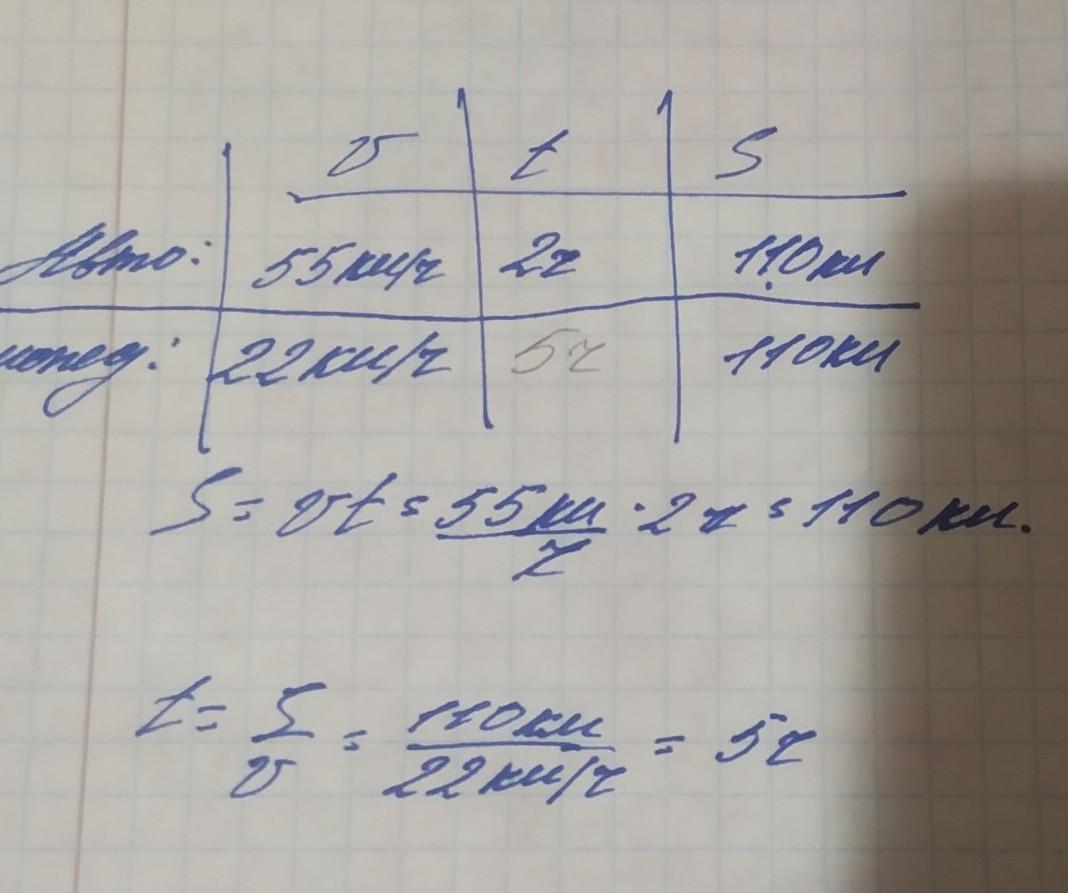 v t S
Авто: 55км/ч 2ч 110км
мопед: 22км/ч 5ч 110км
S = vt = 55км/ч · 2ч = 110км.
t = S/v = 110км/22км/ч = 5ч